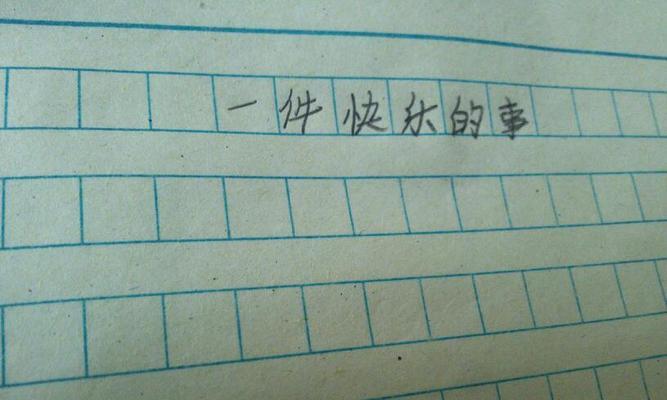 一件快乐的事